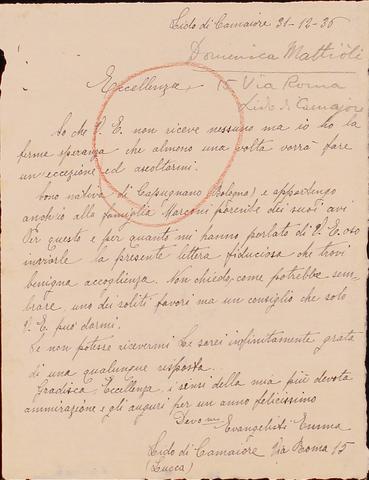 Lido di Camaiore 31-12-35
Domenica Mattioli
15 Via Roma
Lido di Camajore
Eccellenza,
So che V. E. non riceve nessuno ma io ho la
ferma speranza che almeno una volta vorrà fare
un eccezione ed ascoltarmi.
Sono nativa di Capugnano (Bologna) e appartengo
anch'io alla famiglia Marconi dei suoi avi
Per questo e per quanto mi hanno parlato di V. E. oso
inviarle la presente lettera fiduciosa che trovi
benigna accoglienza. Non chiedo, come potrebbe sem-
brare, uno dei soliti favori ma un consiglio che solo
V. E. può darmi.
Se non potesse ricevermi Le sarei infinitamente grata
di una qualunque risposta.
Gradisca, Eccellenza, i sensi della mia più devota
ammirazione e gli auguri per un anno felicissimo
Devo.ma
Evangelisti Emma
Lido di Camaiore Via Roma 15
(Lucca)